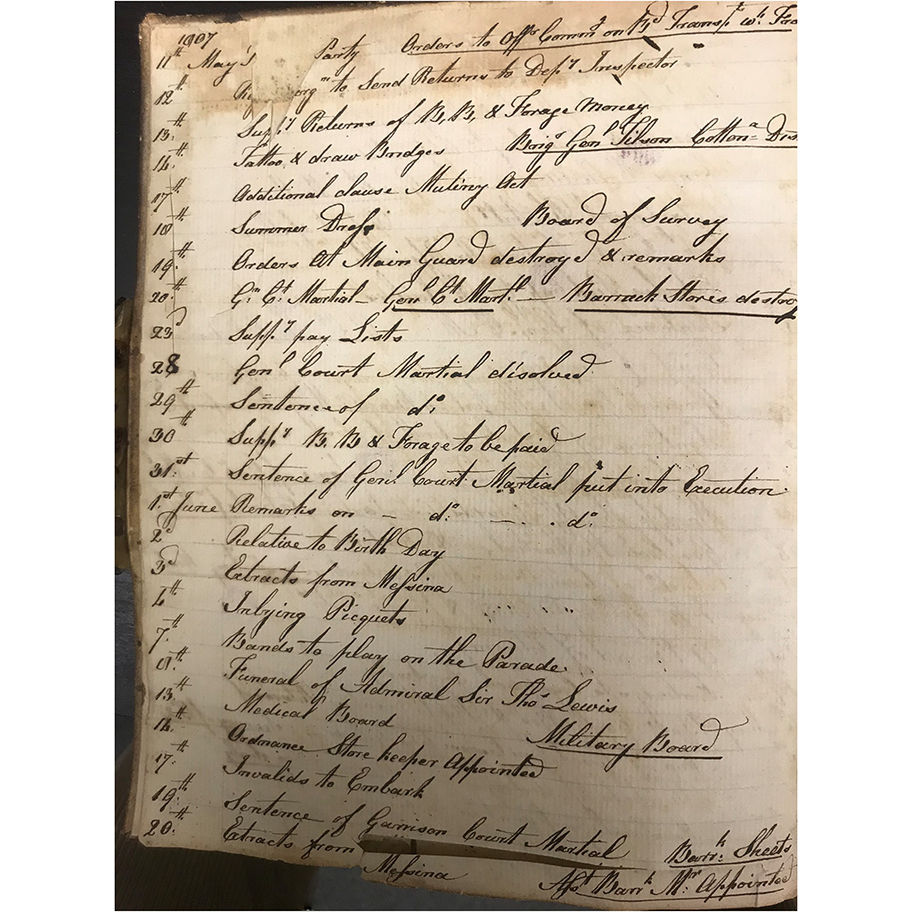 1807
11th May's Party Orders to Offr Commg on bd Transpt wh
12th to Send Returns to Depy Inspector
13th Suppy Returns of B, B, & Forage Money
14th Tattoo, & draw Bridges Brigr Genl Tilson Cottona
17th Additional clause Mutiny Act
18th Summer Dress Board of Survey
19th Orders at Main Guard destroyd & remarks
20th Gn Ct Martial – Genl Ct Martl – Barrack Stores destroy
23d Suppy pay Lists
28 Genl Court Martial disolved
29th Sentence of do
30th Suppy B. B & Forage to be paid
31st Sentence of Genl Court Martial put into Execution
1st June Remarks on – do – . do
2d Relative to Birth Day
3d Extracts from Messina
4th Inlying Picquets
7th Bands to play on the Parade
8th Funeral of Admiral Sir Thos Lewis
13th Medical Board Military Board
14th Ordnance Store keeper Appointed
17th Invalids to Embark
19th Sentence of Garrison Court Martial Barrk Sheets
20th Extracts from Messina Asst Barrk Mr Appointed